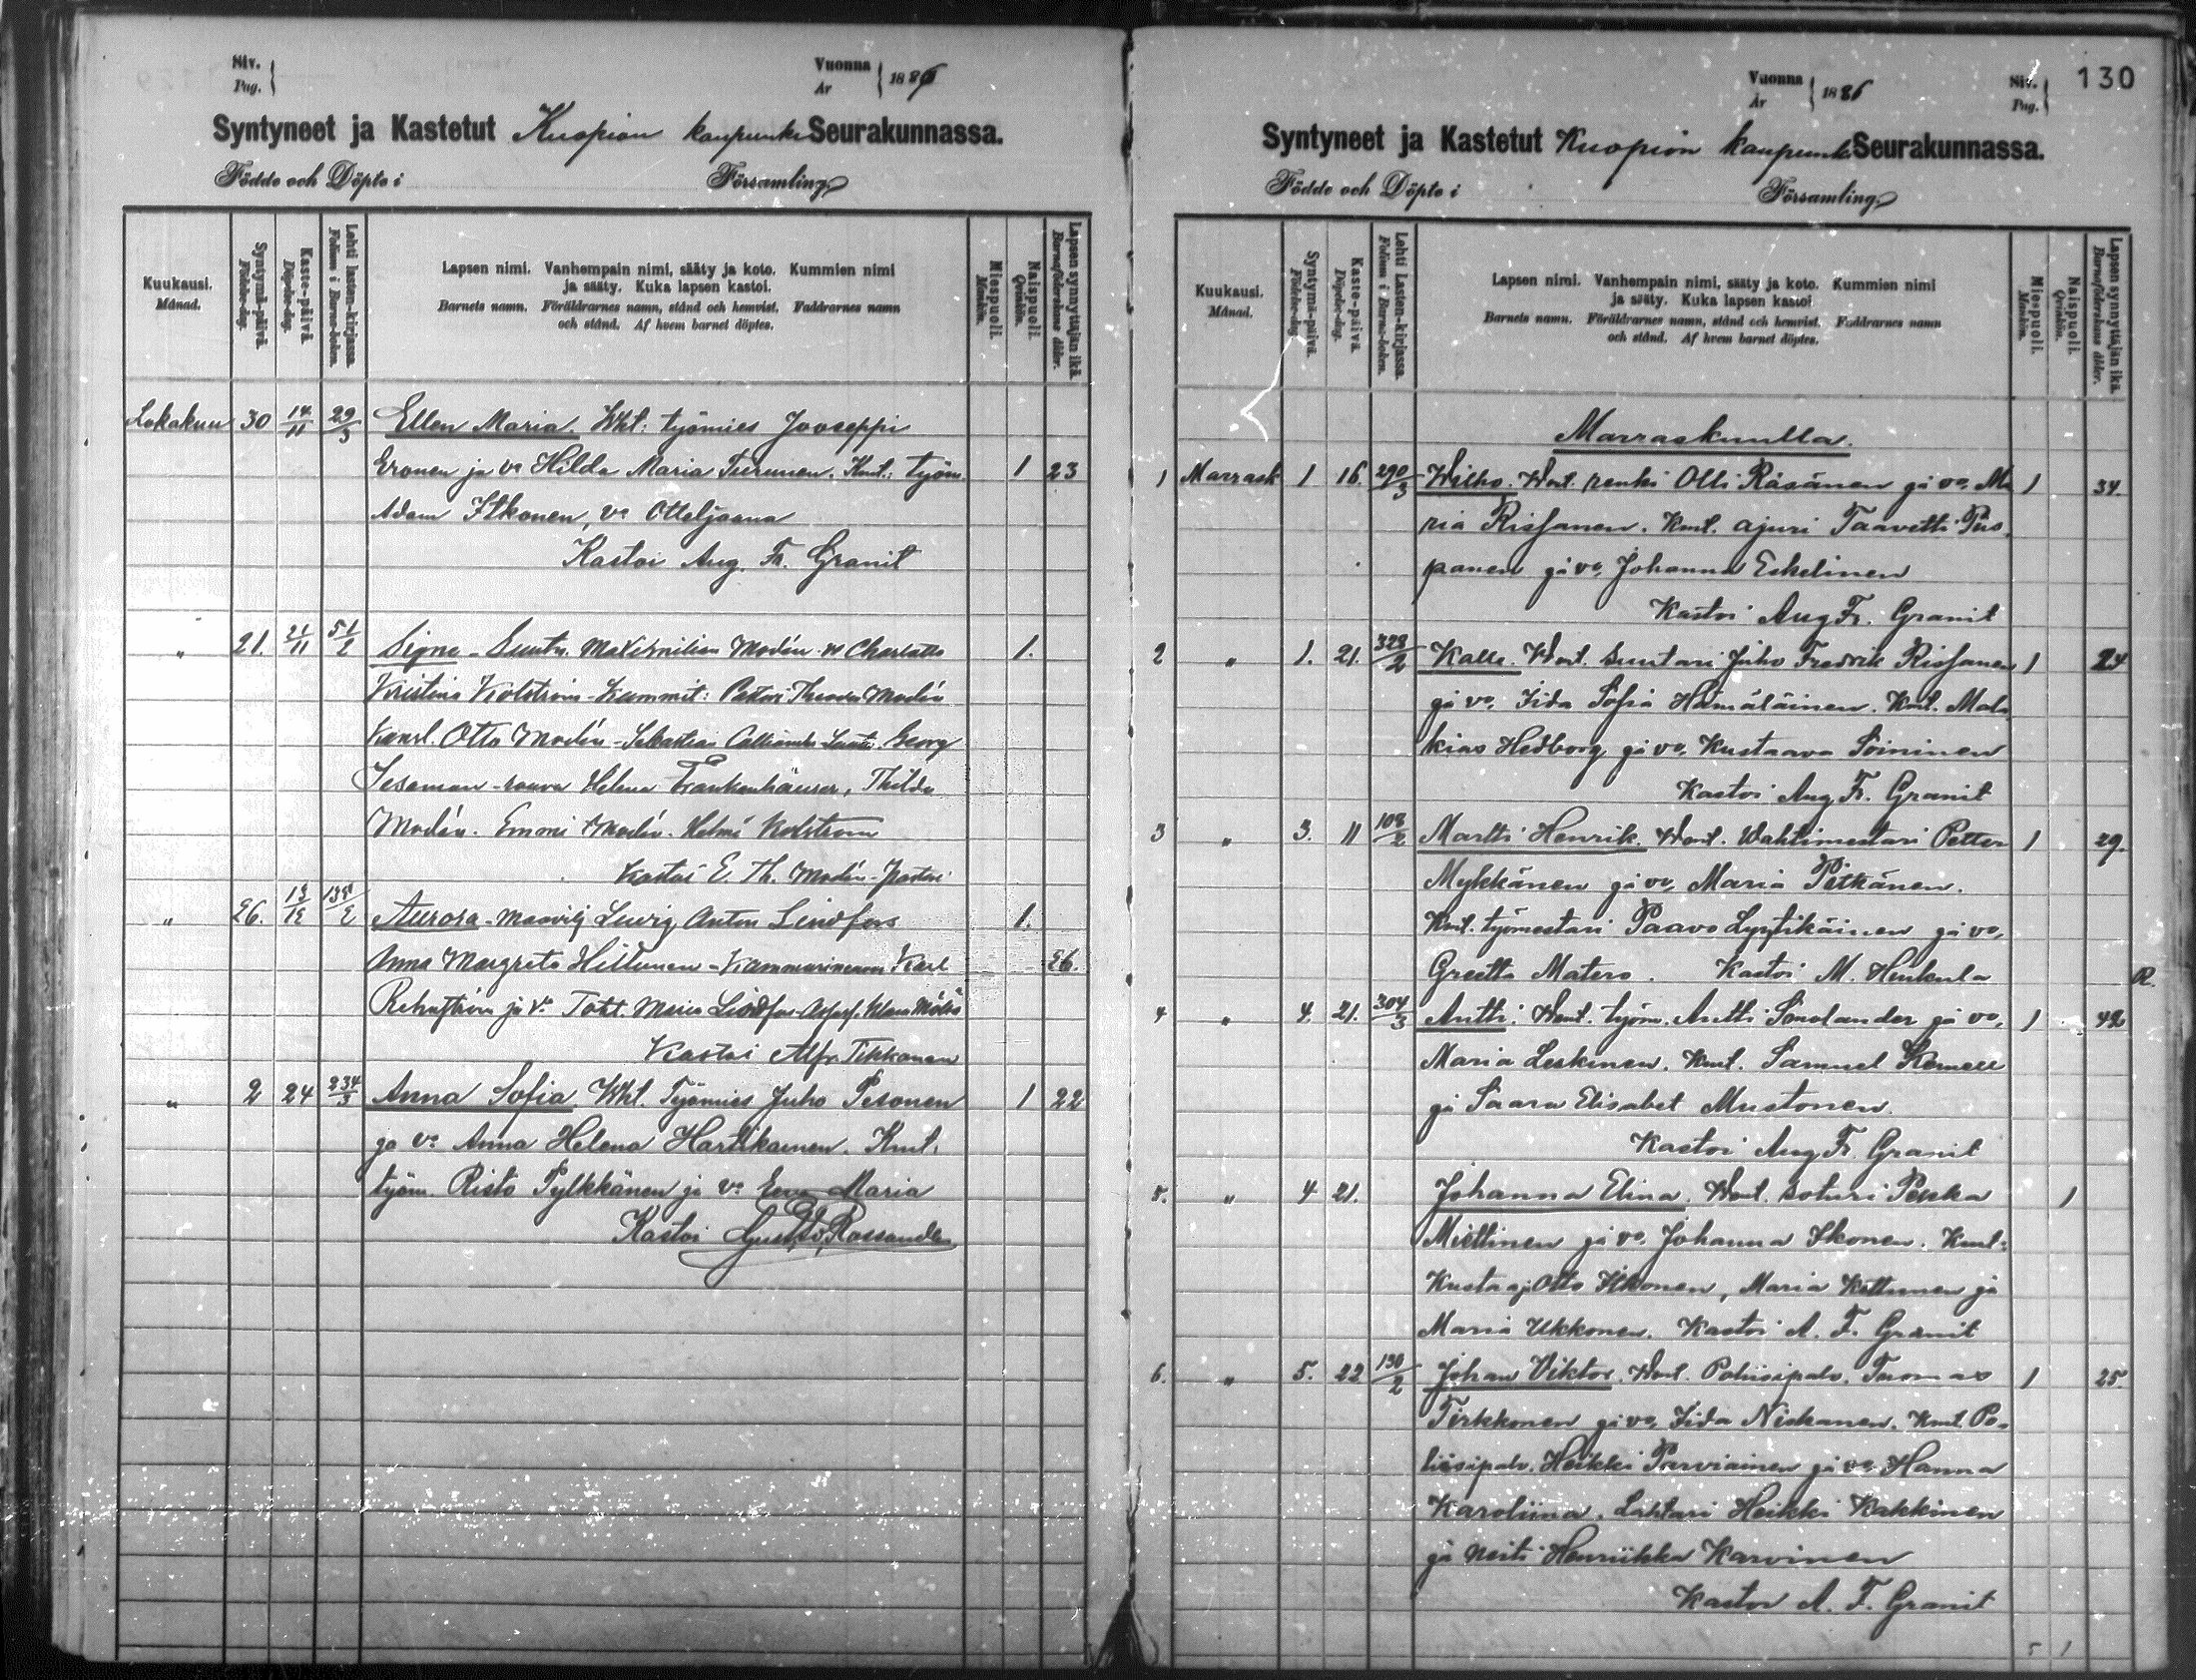 Siv.
Pag.
Vuonna
År
1886
Syntyneet ja Kastetut Kuopion kaupunki Seurakunnassa.
Födde och Döpte i Församling
Kuukausi.
Månad.
Syntymä-päivä.
Födelse-dag.
Kaste-päivä.
Döpelse-dag.
Lehti lasten-kirjassa.
Folium i Barna-boken.
Lapsen nimi. Vanhempain nimi, sääty ja koto. Kummien nimi
ja sääty. Kuka lapsen kastoi.
Barnets namn. Föräldrarnes namn, stånd och hemvist. Faddrarnes namn
och stånd. Af hvem barnet döptes.
Miespuoli.
Mankön.
Naispuoli.
Qvinkön.
Lapsen synnyttäjän ikä.
Barnaföderskans ålder.
Lokakuu 30 14/11 29/3 Ellen Maria. Wht: työmies Jooseppi
Eronen ja vo Hilda Maria Turunen. Kmt.: työm. 1 23
Adam Itkonen, vo Otteljaana
Kastoi Aug. Fr. Granit
" 21. 21/11 51/2 Signe - Maximilian Modén Charlotta 1.
Kristina Kolström - Kummit: Pastori Theodor Modén
Otto Modén - Sebastian Georg
rouva Helena Frankenhäuser, Thilda
Modén. Emmi Modén. Helmi Kolström
Kastoi E. Th. Modén - Pastori
" 26. 13/12 Aurora - Ludvig Anton Lindfors 1.
Anna Margreta Hiltunen - Karl 26.
ja vo Maria Lindfors
Kastoi Alfr. Tikkanen
" 2 24 234/3 Anna Sofia. Wht. Työmies Juho Pesonen 1 22
ja vo Anna Helena Hartikainen. Kmt.
työm. Risto Pylkkänen ja vo Eeva Maria
Kastoi Rossander
Vuonna
År
1886
Siv.
Pag.
130
Syntyneet ja Kastetut Kuopion kaupunki Seurakunnassa.
Födde och Döpte i Församling
Kuukausi.
Månad.
Syntymä-päivä.
Födelse-dag.
Kaste-päivä.
Döpelse-dag.
Lehti Lasten-kirjassa.
Folium i Barna-boken.
Lapsen nimi. Vanhempain nimi, sääty ja koto. Kummien nimi
ja sääty. Kuka lapsen kastoi.
Barnets namn. Föräldrarnes namn, stånd och hemvist. Faddrarnes namn
och stånd. Af hvem barnet döptes.
Miespuoli.
Mankön.
Naispuoli.
Qvinkön.
Lapsen synnyttäjän ikä.
Barnaföderskans ålder.
Marraskuulla.
1 Marrask 1 16. 290/3 Wilho. Wmt. renki Olli Räsänen ja vo, Ma 1 34.
ria Rissanen. Kmt. ajuri Taavetti Pus
panen ja vo, Johanna Eskelinen
Kastoi Aug Fr. Granit
2 " 1. 21. 328/2 Kalle. Wmt. suutari Juho Fredrik Rissanen 1 24
ja vo, Iida Sofia Hämäläinen. Kmt. Mala
kias Hedborg ja vo, Kustaava Soininen
Kastoi Aug Fr. Granit
3 " 3. 11 108/2 Martti Henrik. Wmt. Wahtimestari Petter 1 29.
Mykkänen ja vo, Maria Pitkänen.
Kmt. työmestari Paavo Lyytikäinen ja vo,
Greetta Matero. Kastoi M. Heulenla R.
4 " 4. 21. 304/3 Antti. Wmt. työm. Antti Sorolander ja vo, 1 42
Maria Leskinen. Kmt. Samuel Kernell
ja Saara Elisabet Mustonen.
Kastoi Aug Fr. Granit
5. " 4 21. Johanna Elina. Wmt. soturi Pekka 1
Miettinen ja vo, Johanna Ikonen. Kmt:
Kustaa ja Otto Ikonen, Maria Kettunen ja
Maria Ukkonen. Kastoi A. F. Granit
6. " 5. 22 130/2 Johan Viktor. Wmt. Poliisipalv. Tuomas 1 25.
Tirkkonen ja vo, Iida Niskanen. Kmt. Po-
liisipalv. Heikki Parviainen ja vo, Hanna
Karoliina, Lahtari Heikki Kakkinen
ja neiti Henriikka Karvinen
Kastoi A. F. Granit
5 1